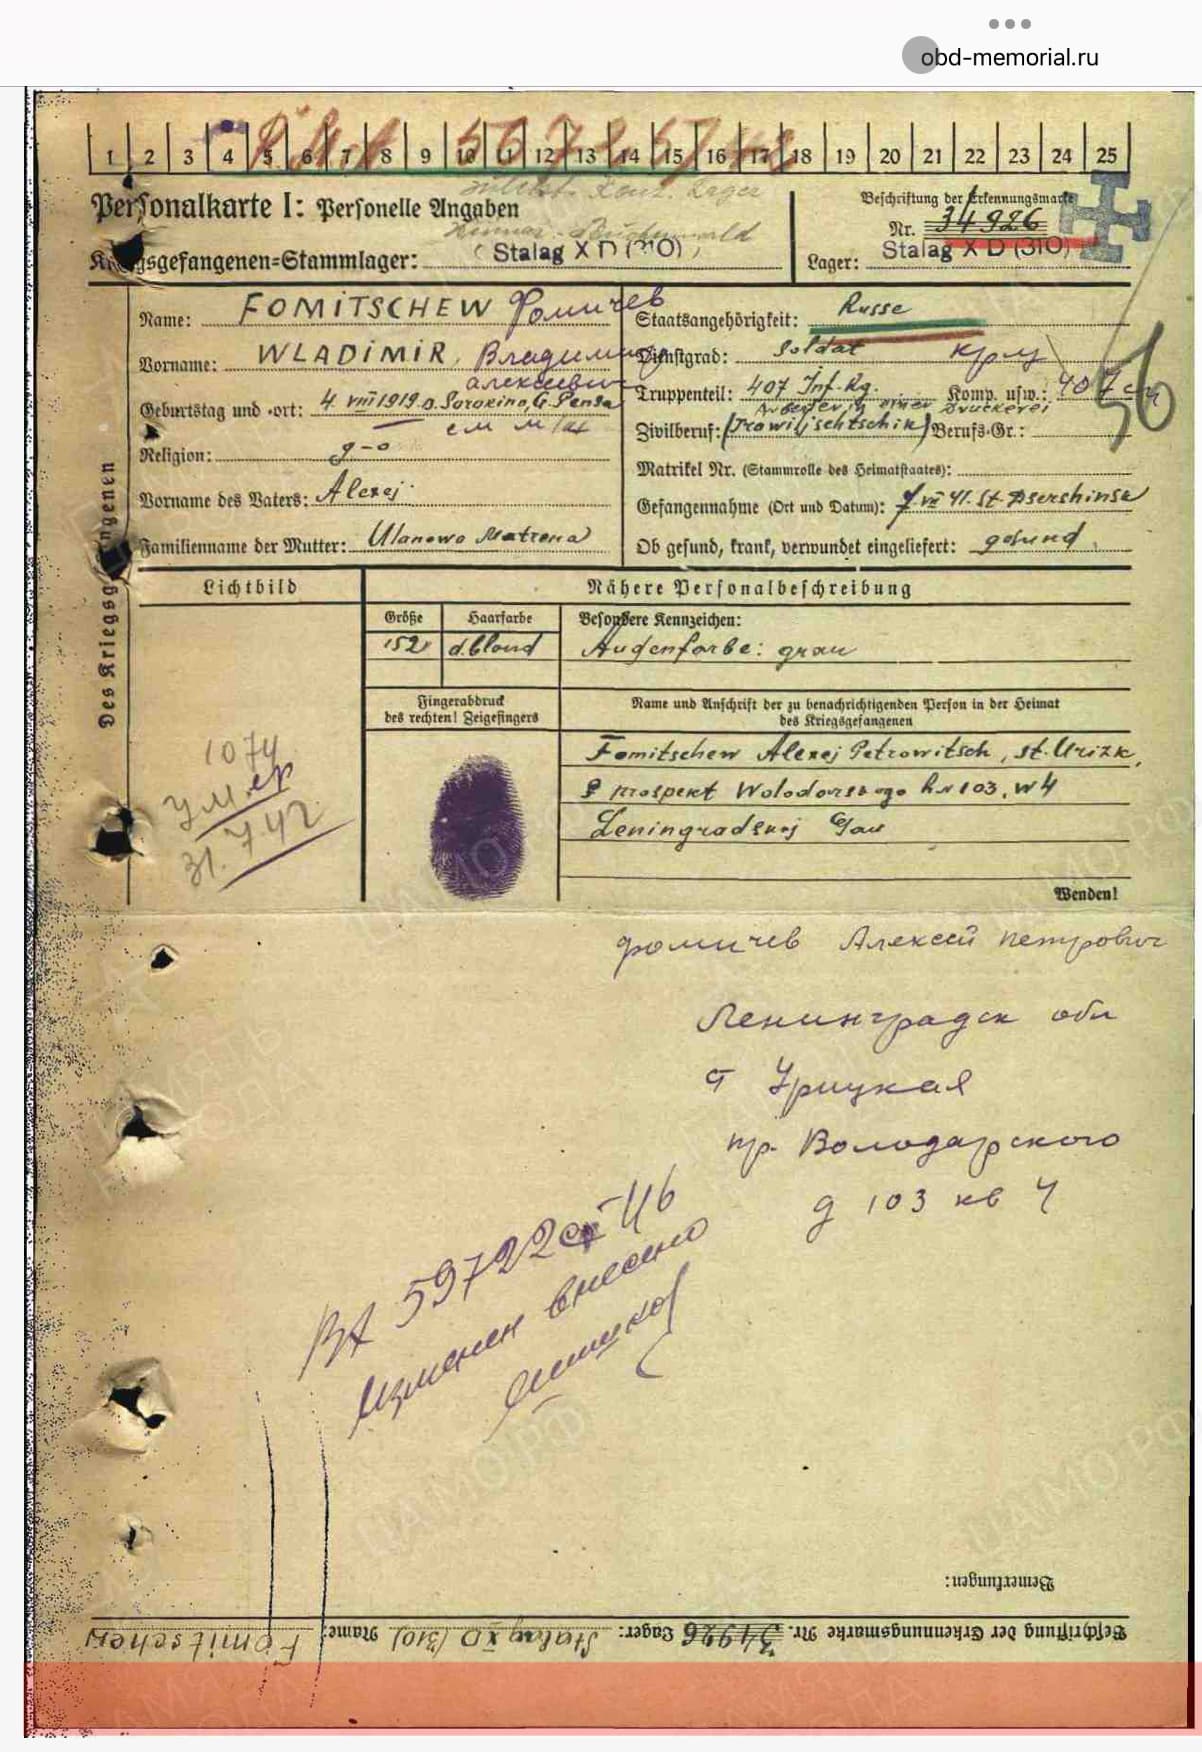 obd-memorial.ru
1 2 3 4 5 6 7 8 9 10 11 12 13 14 15 16 17 18 19 20 21 22 23 24 25
zuletzt Konz. Lager
Personalkarte I: Personelle Angaben
Beschriftung der Erkennungsmarke
Nr. 34926
Weimar-Buchenwald
Kriegsgefangenen=Stammlager: Stalag X D (310)
Lager: Stalag X D (310)
Des Kriegsgefangenen
Name: FOMITSCHEW Фомичев
Staatsangehörigkeit: Russe
Vorname: WLADIMIR Владимир
Dienstgrad: Soldat
Алексеевич
Truppenteil: 407 Inf. Rg. Komp. usw.: 407
56
Geburtstag und =ort: 4 VIII 1919 D. Sorokino, G. Pensa
Arbeiter in einer Druckerei
Zivilberuf: Berufs=Gr.:
Religion: g-o
Matrikel Nr. (Stammrolle des Heimatstaates):
Vorname des Vaters: Alexej
Gefangennahme (Ort und Datum): 7. VII 41. St. Dsershinsk
Familienname der Mutter: Ulanowa Matrena
Ob gesund, krank, verwundet eingeliefert: gesund
Lichtbild
Nähere Personalbeschreibung
Größe Haarfarbe Besondere Kennzeichen:
152 d.blond Augenfarbe: grau
Fingerabdruck
des rechten! Zeigefingers
Name und Anschrift der zu benachrichtigenden Person in der Heimat
des Kriegsgefangenen
Fomitschew Alexej Petrowitsch, st. Urizk,
Prospekt Wolodorskago 103, 4
Leningradskoj Gau
1074
умер
31.7.42
Wenden!
Фомичев Алексей Петрович
Ленинградск обл
ст Урицкая
пр. Володарского
д 103 кв 4
59722 46
изменен внесено
Bemerkungen:
Beschriftung der Erkennungsmarke Nr. 34926 Lager: Stalag XD (310) Name: Fomitschew